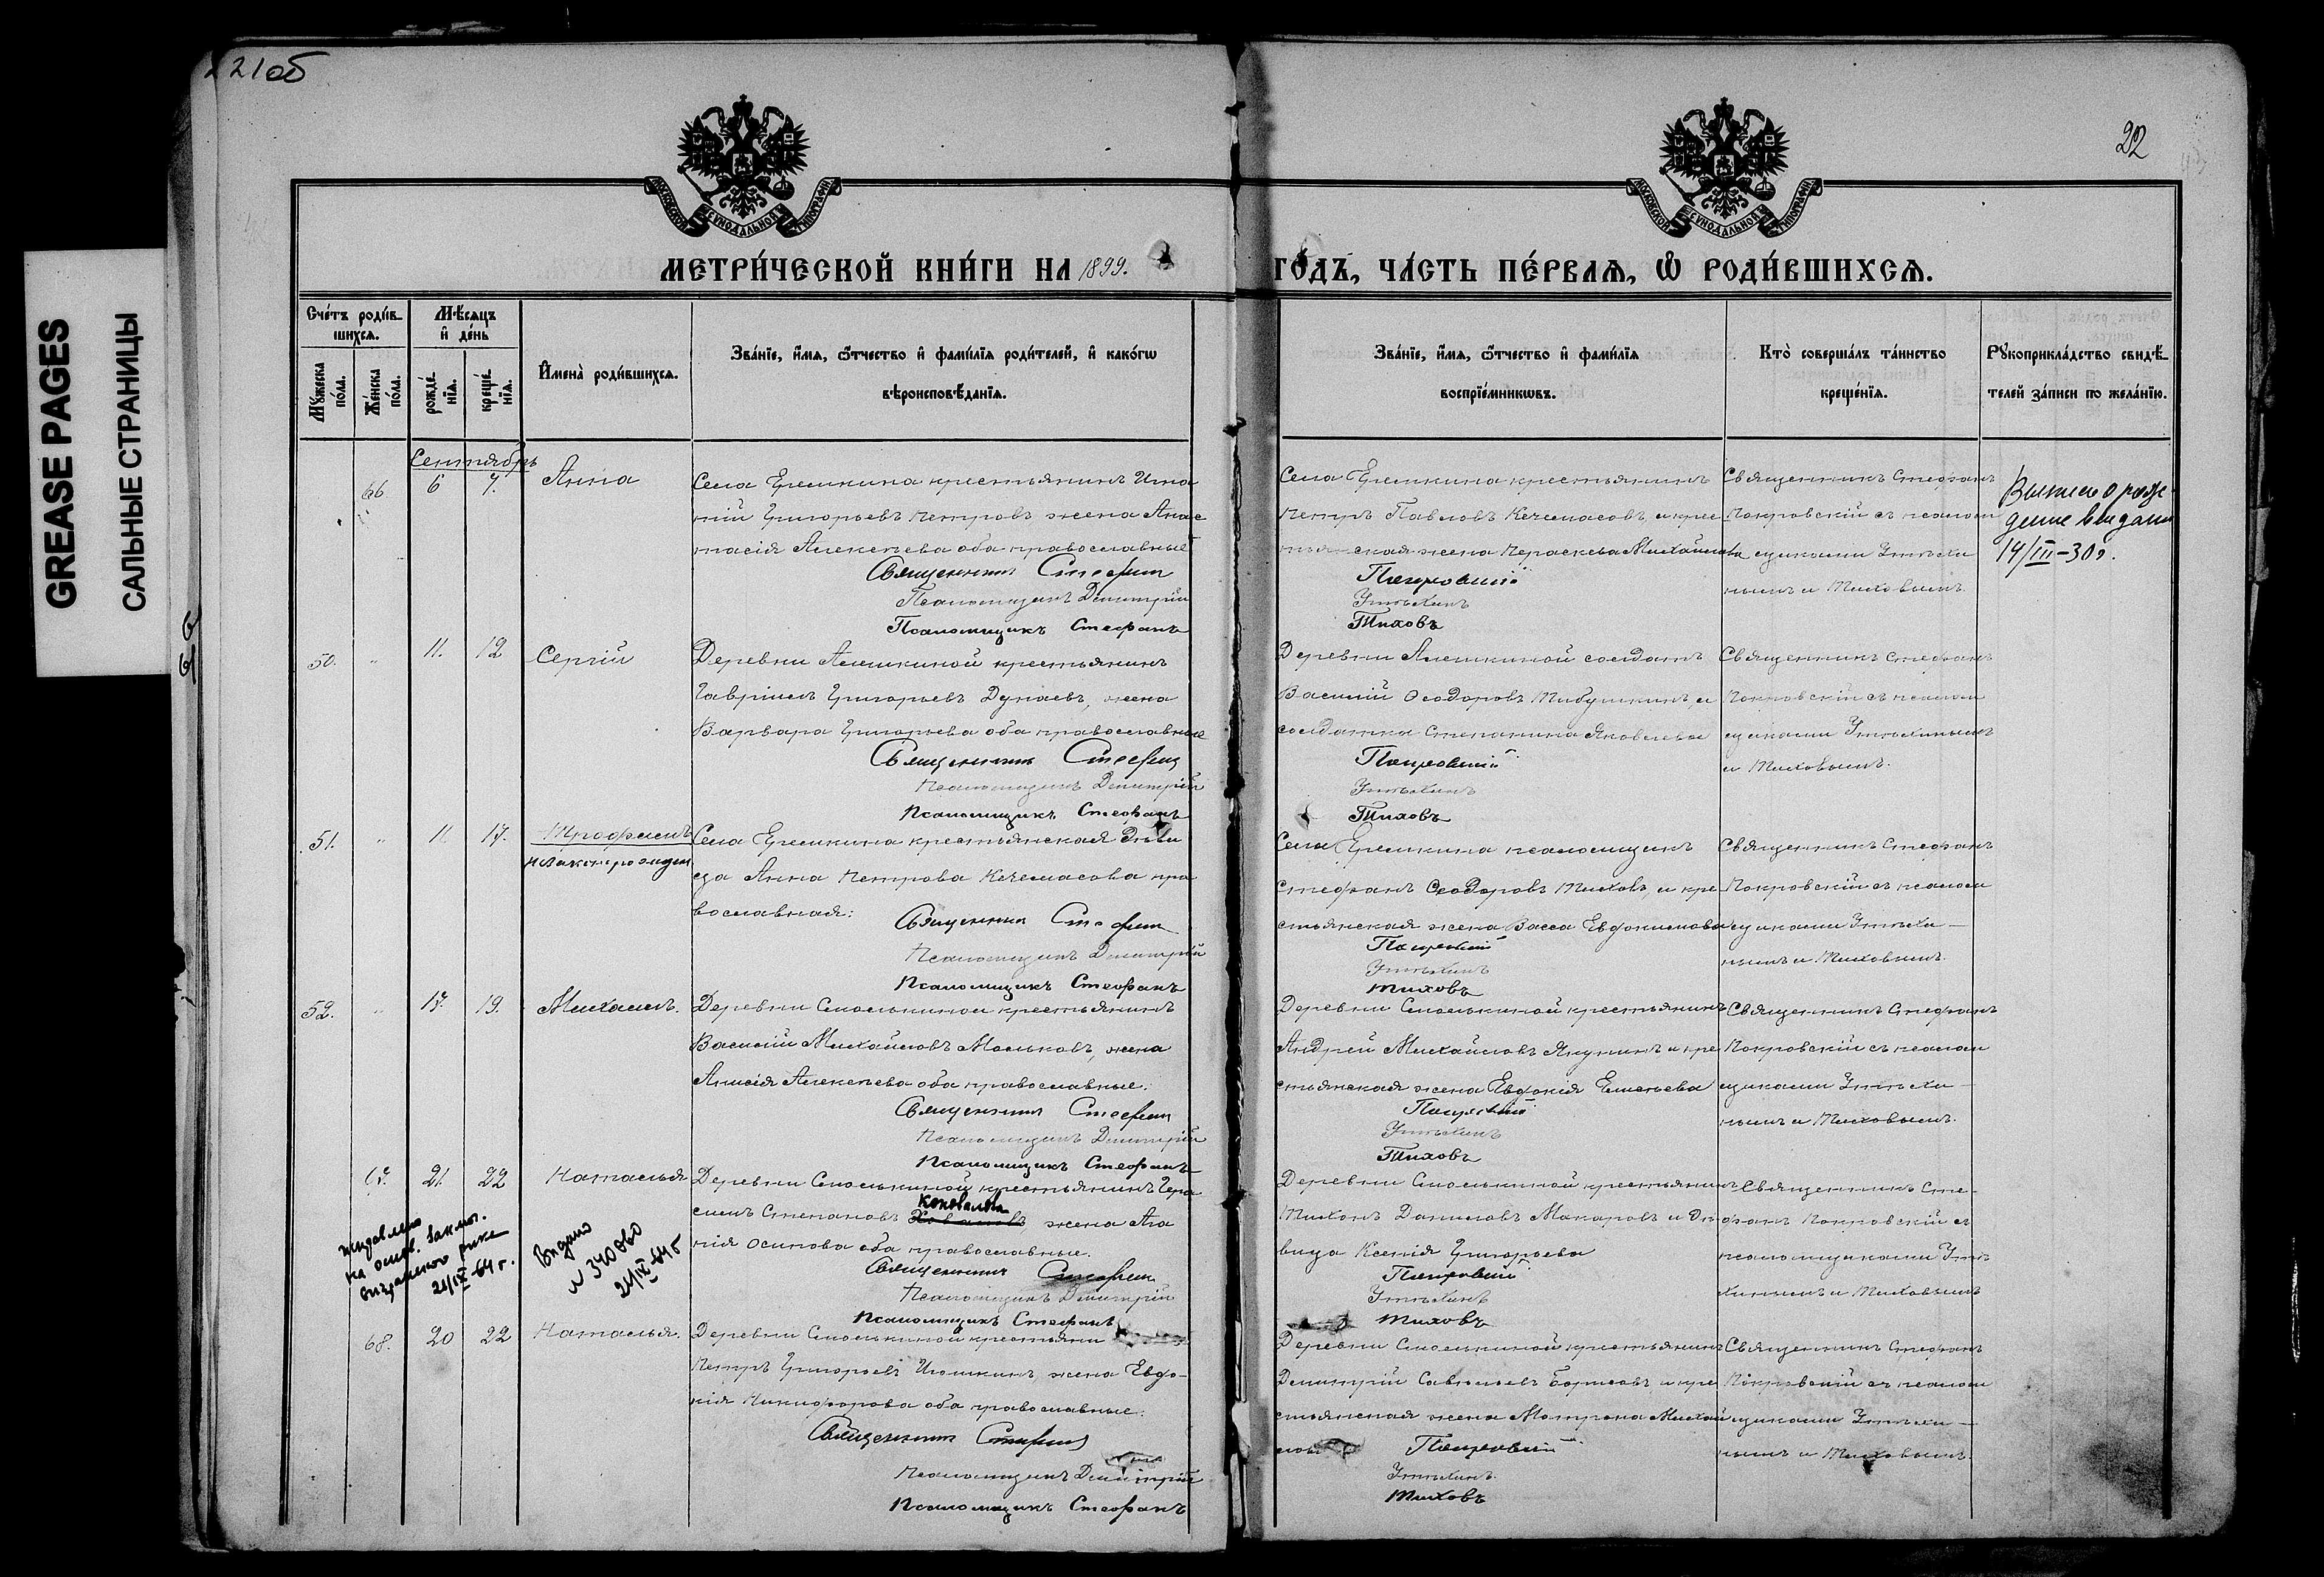 221об
22
GREASE PAGES
САЛЬНЫЕ СТРАНИЦЫ
МОСКОВСКОЙ СѴНОДАЛЬНОЙ ТИПОГРАФІИ
МОСКОВСКОЙ СѴНОДАЛЬНОЙ ТИПОГРАФІИ
МЕТРИ́ЧЕСКОЙ КНИ́ГИ НА 1899.
ГО́ДЪ, ЧА́СТЬ ПЕ́РВАѦ, Ѡ҆ РОДИ́ВШИХСѦ.
Сче́тъ роди́в
шихсѧ.
Мѣ́сѧцъ
и҆ де́нь
Мꙋ́жеска
по́ла.
Же́нска
по́ла.
рожде́
нїѧ.
креще́
нїѧ.
И҆мена̀ роди́вшихсѧ.
Зва́нїе, и҆́мѧ, ѻ҆́тчество и҆ фами́лїѧ роди́телей, и҆ како́гѡ
вѣроисповѣ́данїѧ.
Зва́нїе, и҆́мѧ, ѻ҆́тчество и҆ фами́лїѧ
воспрїе́мникѡвъ.
Кто̀ соверша́лъ та́инство
креще́нїѧ.
Рꙋкоприкла́дство свидѣ́
телей за́писи по жела́нїю.
Сентябрь
66 6 7. Анна
Села Еремкина крестьянинъ Игна
тій Григорьевъ Петровъ жена Анас
тасія Алексѣева оба православные
Священникъ Стефан
Псаломщикъ Димитрій
Псаломщикъ Стефанъ
Села Еремкина крестьянинъ
Петръ Павловъ Кечемасовъ, и крес
тьянская жена Параскева Михайлова
Покровский
Утѣхинъ
Тиховъ
Священникъ Стефанъ
Покровскій съ псалом
щиками Утѣхи
нымъ и Тиховымъ.
Выпись о рож
дение выдана
14/III-30г.
50. " 11. 12 Сергій
Деревни Алешкиной крестьянинъ
Гавріилъ Григорьевъ Дунаевъ, жена
Варвара Григорьева оба православные
Священникъ Стефан
Псаломщикъ Димитрій
Псаломщикъ Стефанъ
Деревни Алешкиной солдатъ
Василій Ѳеодоровъ Тибушкинъ, и
солдатка Степанида Яковлева
Покровский
Утѣхинъ
Тиховъ
Священникъ Стефанъ
Покровскій съ псалом
щиками Утѣхинымъ
и Тиховымъ.
51. " 11. 17. Трофимъ
незаконнорожден
Села Еремкина крестьянская дѣви
ца Анна Петрова Кечемасова пра
вославная:
Священник Стефан
Псаломщикъ Димитрій
Псаломщикъ Стефанъ
Села Еремкина псаломщикъ
Стефанъ Ѳеодоровъ Тиховъ, и кре
стьянская жена Васса Евдокимова
Покровский
Утѣхинъ
Тиховъ
Священникъ Стефанъ
Покровскій съ псалом
щиками Утѣхи
нымъ и Тиховымъ.
52. " 17. 19. Михаилъ.
Деревни Смолькиной крестьянинъ
Василій Михайловъ Мальковъ, жена
Анисія Алексѣева оба православные.
Священникъ Стефан
Псаломщикъ Димитрій
Псаломщикъ Стефанъ
Деревни Смолькиной крестьянинъ
Андрей Михайловъ Якунинъ и кре
стьянская жена Евдокія Елисѣева
Покровский
Утѣхинъ
Тиховъ
Священникъ Стефанъ
Покровскій съ псалом
щиками Утѣхи
нымъ и Тиховымъ.
67. 21. 22 Наталья
Деревни Смолькиной крестьянинъ Гера
Коновалова
симъ Степановъ жена Ага
пія Осипова оба православные.
Священникъ Стефан
Псаломщикъ Димитрій
Псаломщикъ Стефанъ
Деревни Смолькиной крестьянинъ
Тихонъ Даниловъ Макаровъ и дѣ
вица Ксенія Григорьева
Покровский
Утѣхинъ
Тиховъ
Священникъ Сте
фанъ Покровскій съ
псаломщиками Утѣ
хинымъ и Тиховымъ
на основ. заключ.
21/IX-64 г.
Выдано
N 340860
21/IX-64 г
68. 20 22 Наталья.
Деревни Смолькиной крестьяни
Петръ Григорьевъ Игошкинъ, жена Евдо
кія Никифорова оба православные.
Священникъ Стефан
Псаломщикъ Димитрій
Псаломщикъ Стефанъ
Деревни Смолькиной крестьянинъ
Димитрій Савельевъ Борисовъ и кре
стьянская жена Матрона Михай
лова
Покровский
Утѣхинъ.
Тиховъ
Священникъ Стефанъ
Покровскій съ псалом
щиками Утѣхи
нымъ и Тиховымъ.